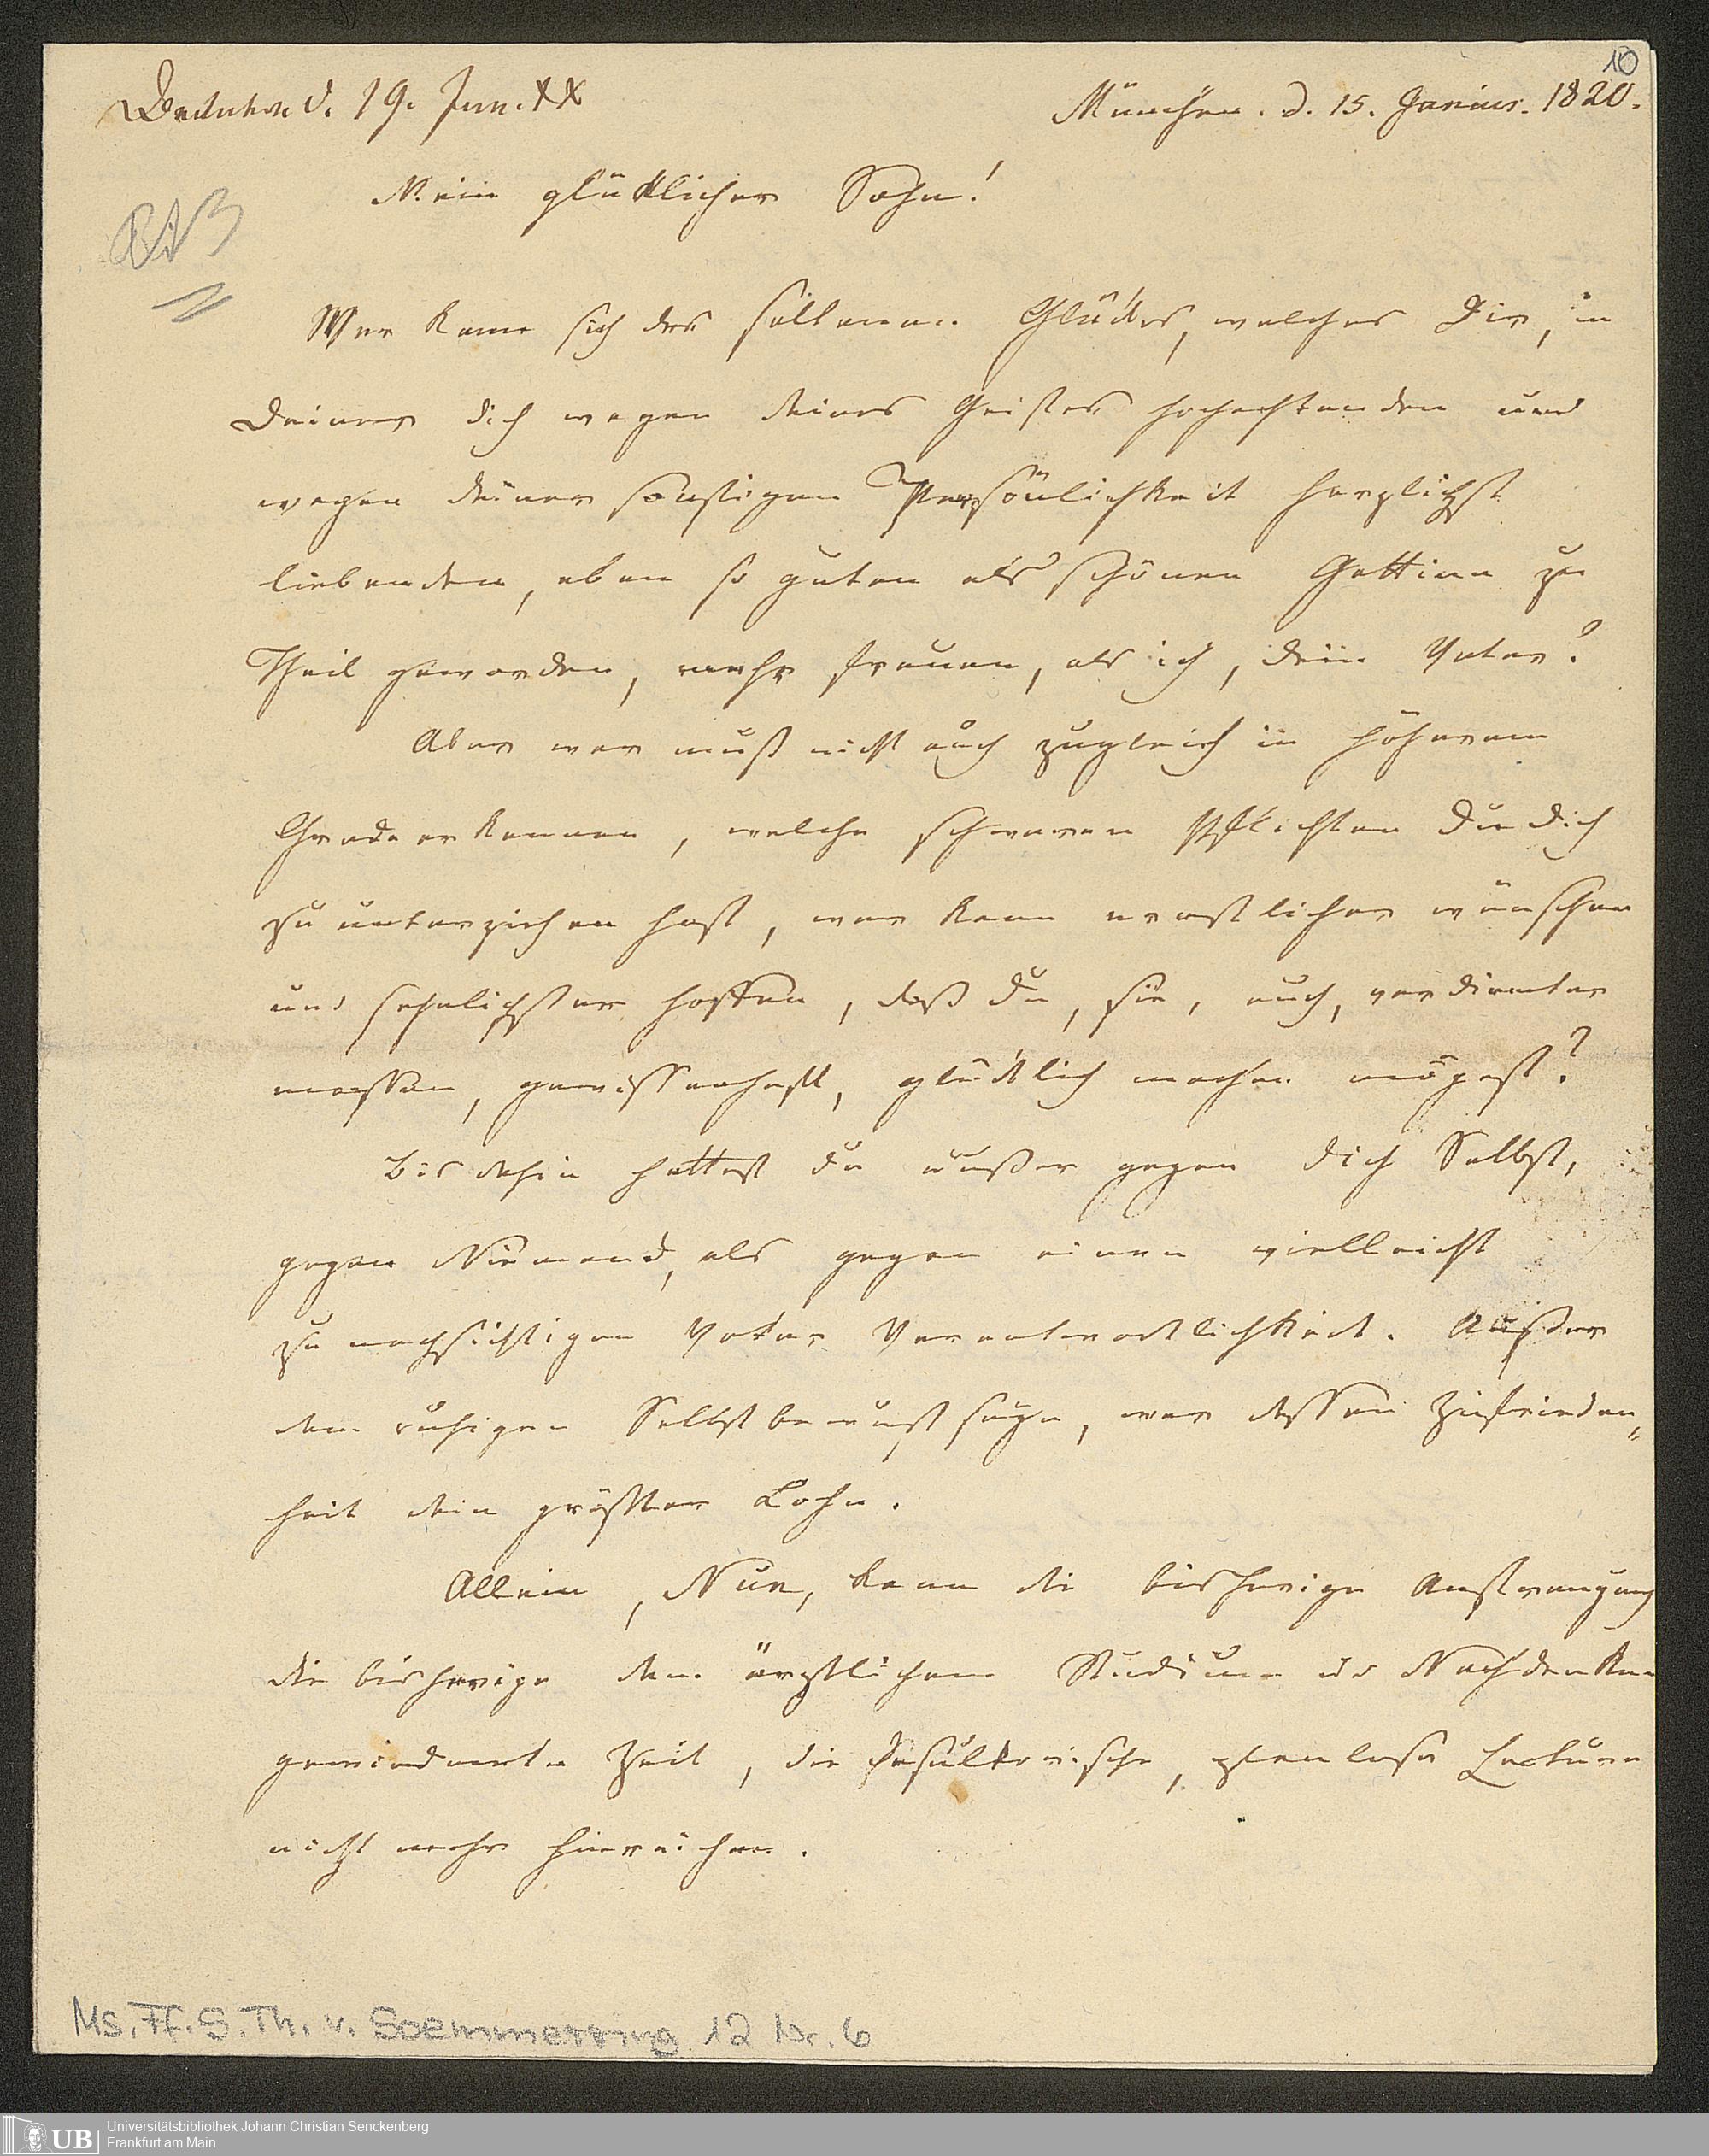 10
Beantw. d. 19. Jun. XX
München. d. 15. Junius. 1820.
Mein glücklicher Sohn!
Wer kann sich des seltenen Glückes, welches Dir, in
Deiner dich wegen deines Geistes hochachtenden und
wegen deiner sonstigen Persönlichkeit herzlichst
liebenden, eben so guten als schönen Gattinn zu
Theil geworden, mehr freuen, als ich, dein Vater?
Aber wer muß nicht auch zugleich in höherem
Grade erkennen, welche schweren Pflichten Du dich
zu unterziehen hast, wer kann ernstlicher wünschen
und sehnlichster hoffen, daß Du, sie, auch, verdienter
massen, gewissenhaft, glücklich machen mögest?
Bis dahin hattest Du außer gegen Dich Selbst,
gegen Niemand, als gegen einen vielleicht
zu nachsichtigen Vater Verantwortlichkeit. Außer
dem ruhigen Selbstbewustseyn, war dessen Zufrieden„
heit dein größter Lohn.
Allein, Nun, kann die bisherige Anstrengung
die bisherige dem ärztlichen Studium u. Nachdenken
gewiedmete Zeit, die desultorische, planlose Lecture
nicht mehr hinreichen.
Ms. Ff. S. Th. v. Soemmerring 12 Nr. 6
UB
Universitätsbibliothek Johann Christian Senckenberg
Frankfurt am Main